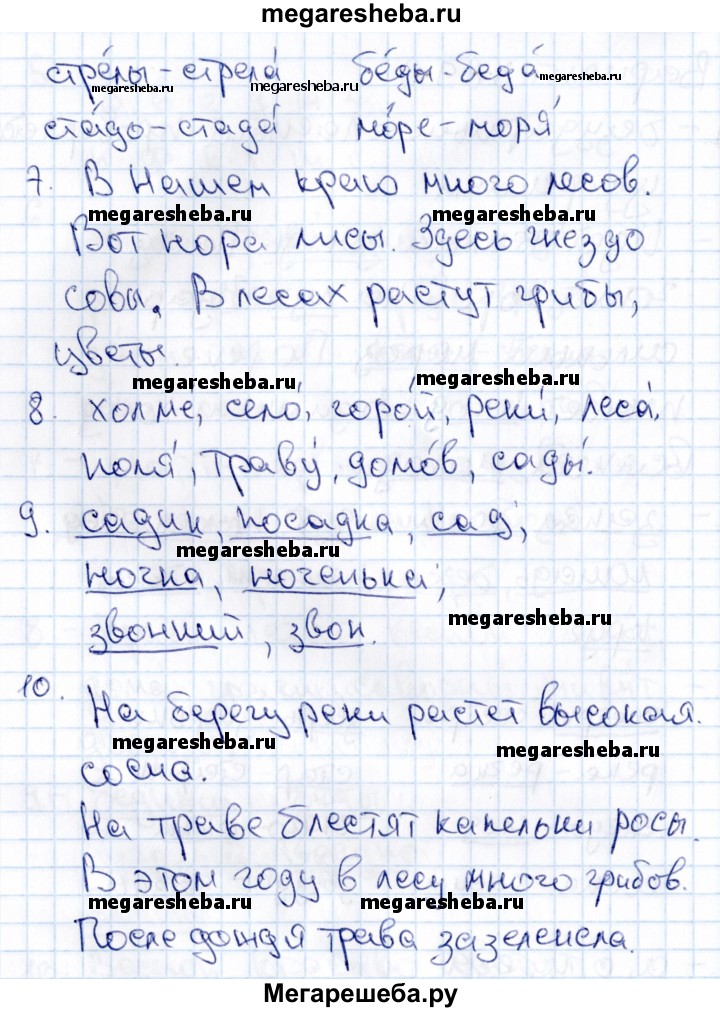 megaresheba.ru
стре́лы - стрела́ бе́ды - беда́
megaresheba.ru megaresheba.ru megaresheba.ru
ста́до - стада́ мо́ре - моря́
7. В нашем краю много лесов.
megaresheba.ru megaresheba.ru
Вот нора лисы. Здесь гнездо
совы. В лесах растут грибы,
цветы.
megaresheba.ru megaresheba.ru
8. холме, село, горо́й, реки́, леса́,
поля́, траву́, домо́в, сады́.
9. садик, посадка, сад,
megaresheba.ru
ночка, ноченька,
megaresheba.ru
звонкий, звон.
10. На берегу реки растет высокая.
megaresheba.ru megaresheba.ru
сосна.
На траве блестят капельки росы.
В этом году в лесу много грибов.
megaresheba.ru megaresheba.ru
После дождя трава зазеленела.
Мегарешеба.ру